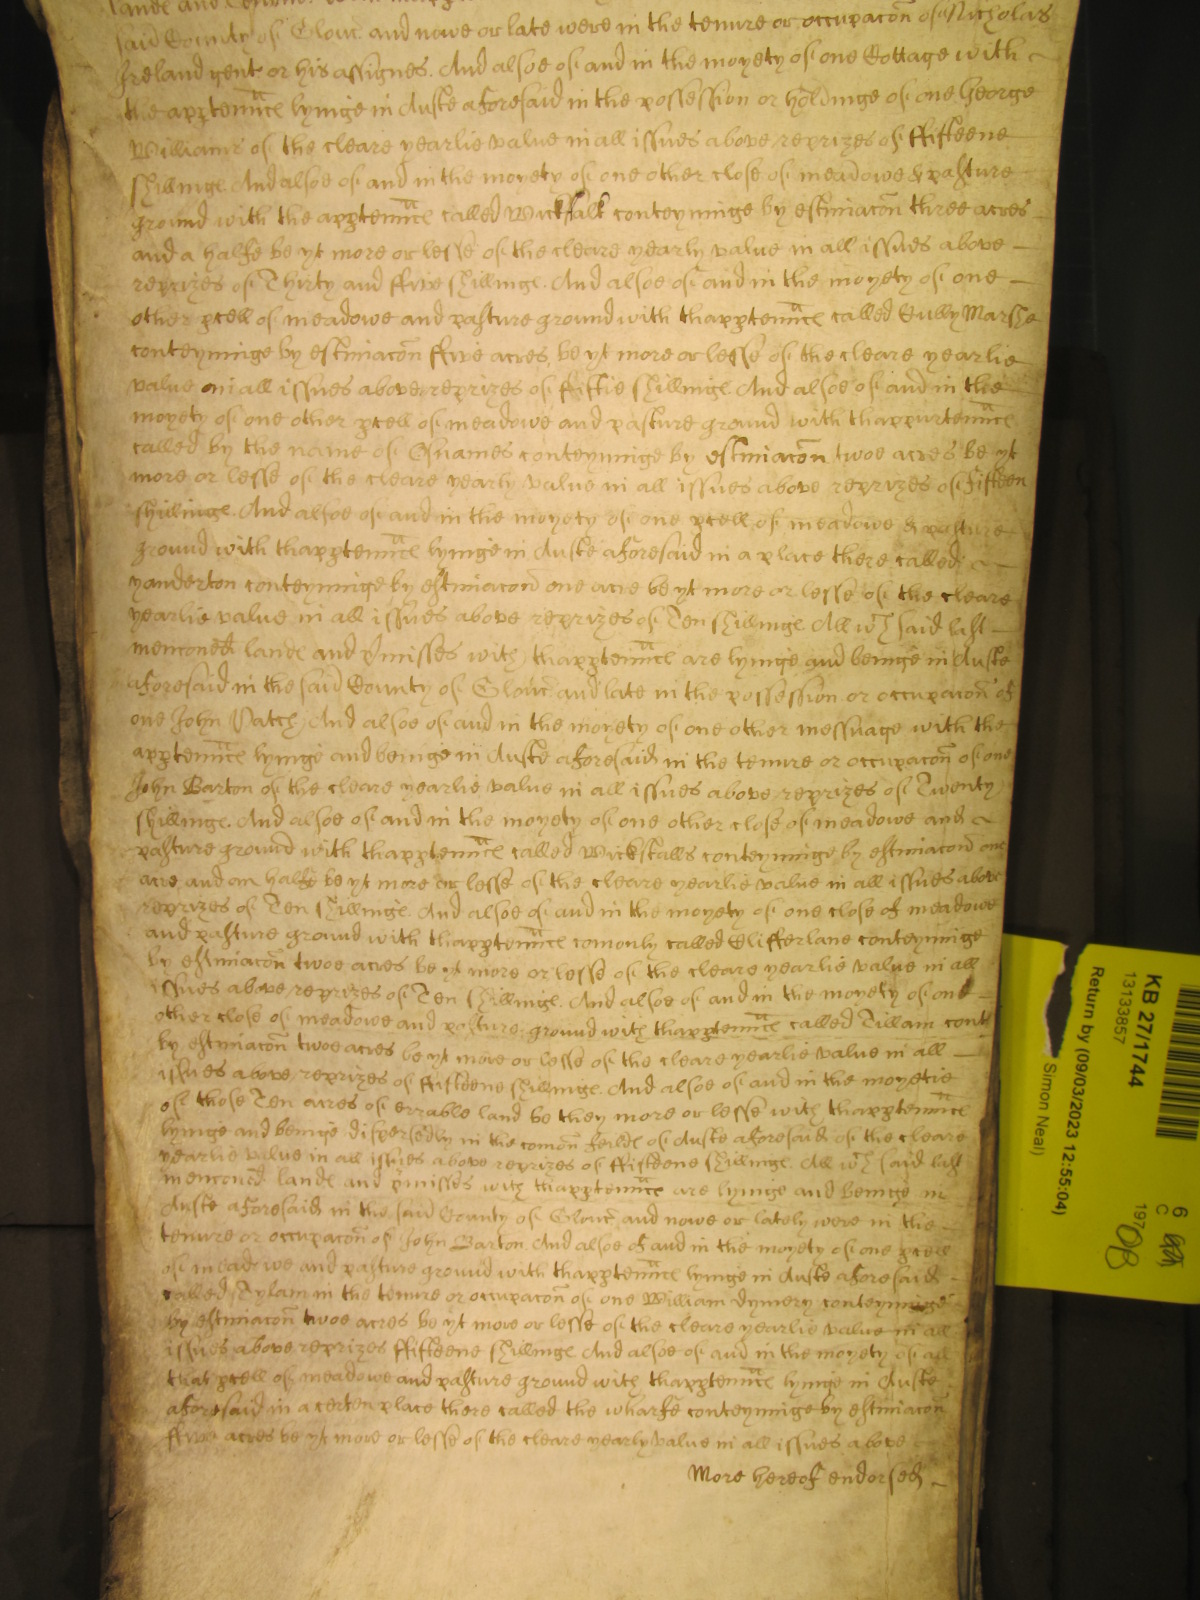 said County of Glouc and nowe or late were in the tenure or occupacon of Nicholas
Ireland gent or his assignes. And alsoe of and in the moyety of one Cottage with
the apptenncℯ lyinge in Auste aforesaid in the possession or holdinge of one George
Williams of the cleare yearlie value in all issues above reprizes of ffifteene
shillingℯ. And alsoe of and in the moyety of one other close of meadowe & pasture
ground with the apptenncℯ called Wickfalk conteyninge by estimacon three acres
and a halfe be yt more or lesse of the cleare yearly value in all issues above
reprizes of Thirty and ffive shillingℯ. And alsoe of and in the moyety of one
other pcell of meadowe and pasture ground with thapptenncℯ called Cully Marshe
conteyninge by estimacon ffive acres be yt more or lesse of the cleare yearlie
value in all issues above reprizes of ffiftie shillingℯ And alsoe of and in the
moyety of one other pcell of meadowe and pasture ground with thappurtenncℯ
called by the name of conteyninge by estimacon twoe acres be yt
more or lesse of the cleare yearly value in all issues above reprizes of fifteen
shillingℯ. And alsoe of and in the moyety of one pcell of meadowe & pasture
ground with thapptenncℯ lyinge in Auste aforesaid in a place there called
yanderton conteyninge by estimacon one acre be yt more or lesse of the cleare
yearlie value in all issues above reprizes of Ten shillingℯ All wch said last
menconed landℯ and pmisses with thapptenncℯ are lyinge and beinge in Auste
aforesaid in the said County of Glouc and late in the possession or occupacon of
one John Patch And alsoe of and in the moyety of one other messuage with the
apptenncℯ lyinge and beinge in Auste aforesaid in the tenure or occupacon of one
John Barton of the cleare yearlie value in all issues above reprizes of Twenty
shillingℯ. And alsoe of and in the moyety of one other close of meadowe and
pasture ground with thapptenncℯ called Wickstalls conteyninge by estimacon one
acre and an halfe be yt more or lesse of the cleare yearlie value in all issues above
reprizes of Ten shillingℯ. And alsoe of and in the moyety of one close of meadowe
and pasture ground with thapptenncℯ comonly called Clifferlane conteyninge
by estimacon twoe acres be yt more or lesse of the cleare yearlie value in all
issues above reprizes of Ten shillingℯ. And alsoe of and in the moyety of one
other close of meadowe and pasture ground with thapptenncℯ called Tillam cont
by estimacon twoe acres be yt more or lesse of the cleare yearlie value in all
issues above reprizes of ffifteene shillingℯ. And alsoe of and in the moyetie
of those Ten acres of errable land be they more or lesse with thapptenncℯ
lyinge and beinge dispersedly in the comon feildℯ of Auste aforesaid of the cleare
yearlie value in all issues above reprizes of ffifteene shillingℯ. All wch said last
menconed landℯ and pmisses with thapptenncℯ are lyinge and beinge in
Auste aforesaid in the said County of Glouc and nowe or lately were in the
tenure or occupacon of John Barton And alsoe of and in the moyety of one pcell
of meadowe and pasture ground with thapptenncℯ lyinge in Auste aforesaid
called Tylam in the tenure or occupacon of one William dymery conteyninge
by estimacon twoe acres be yt more or lesse of the cleare yearlie value in all
issues above reprizes ffifteene shillingℯ And alsoe of and in the moyety of all
that pcell of meadowe and pasture ground with thapptenncℯ lyinge in Auste
aforesaid in a certen place there called the wharfe conteyninge by estimacon
ffive acres be yt more or lesse of the cleare yearly value in all issues above
More hereof endorsed
KB 27/1744
13133857
Return by (09/03/2023 12:55:04)
Simon Neal)
6
C
197